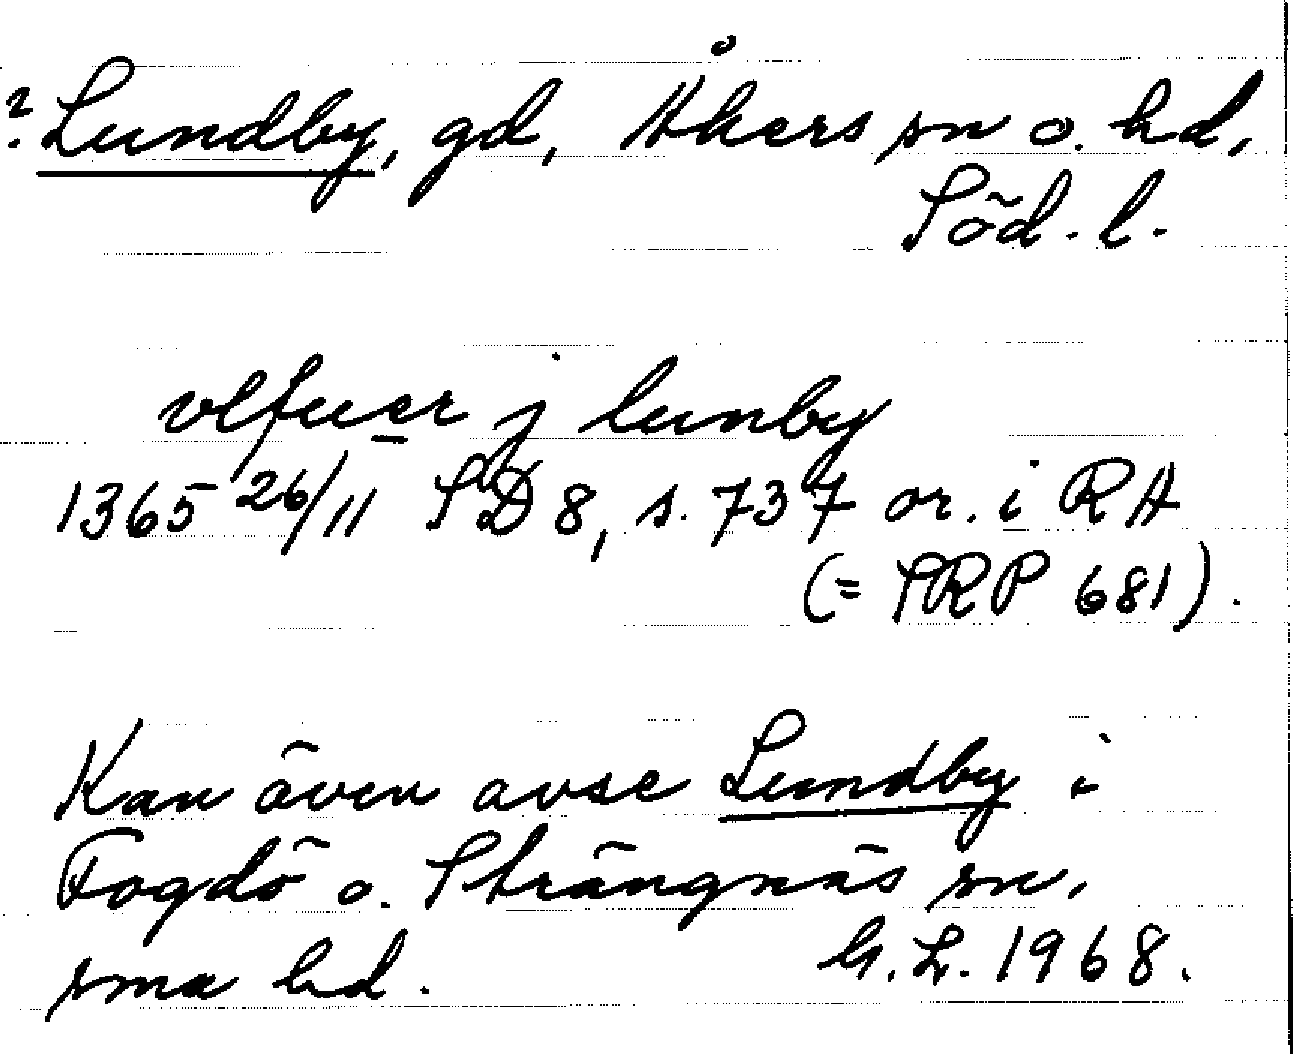 ? Lundby, gd, Åkers sn o. hd,
Söd. l.
vlfuer j lunby
1365 26/11 SD 8, s. 737 or. i RA
(= SRP 681).
Kan även avse Lundby i
Fogdö o. Strängnäs sn,
sma hd.   G. L. 1968.